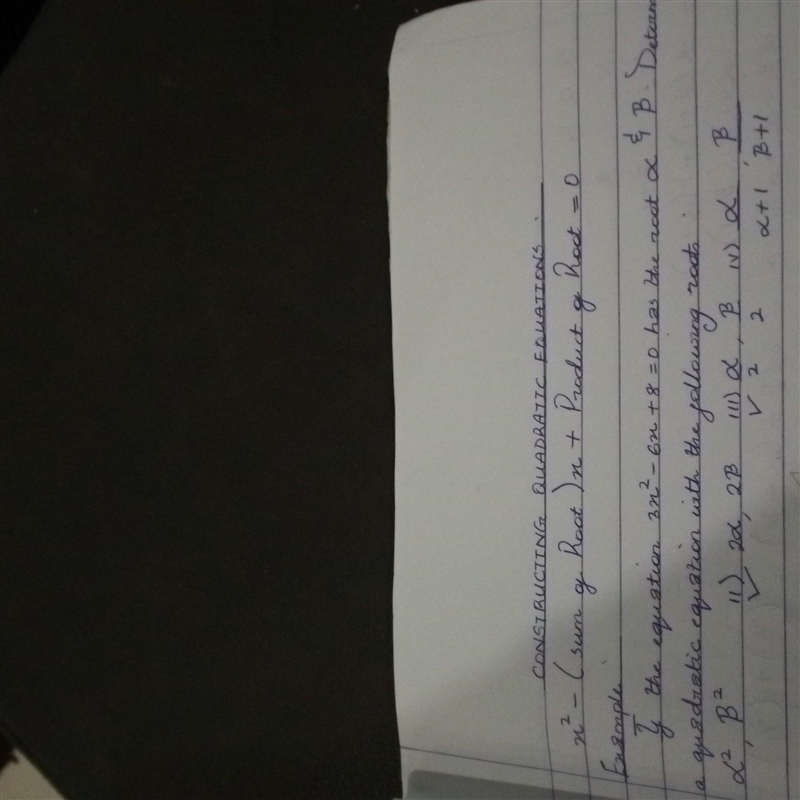 CONSTRUCTING QUADRATIC EQUATIONS
x² - (sum of Root)x + Product of Root = 0
Example
If the equation 3x² - 6x + 8 = 0 has the root α & β. Determ
a quadratic equation with the following roots.
α², β² ii) 2α, 2β iii) α/2, β/2 iv) α/α+1, β/β+1